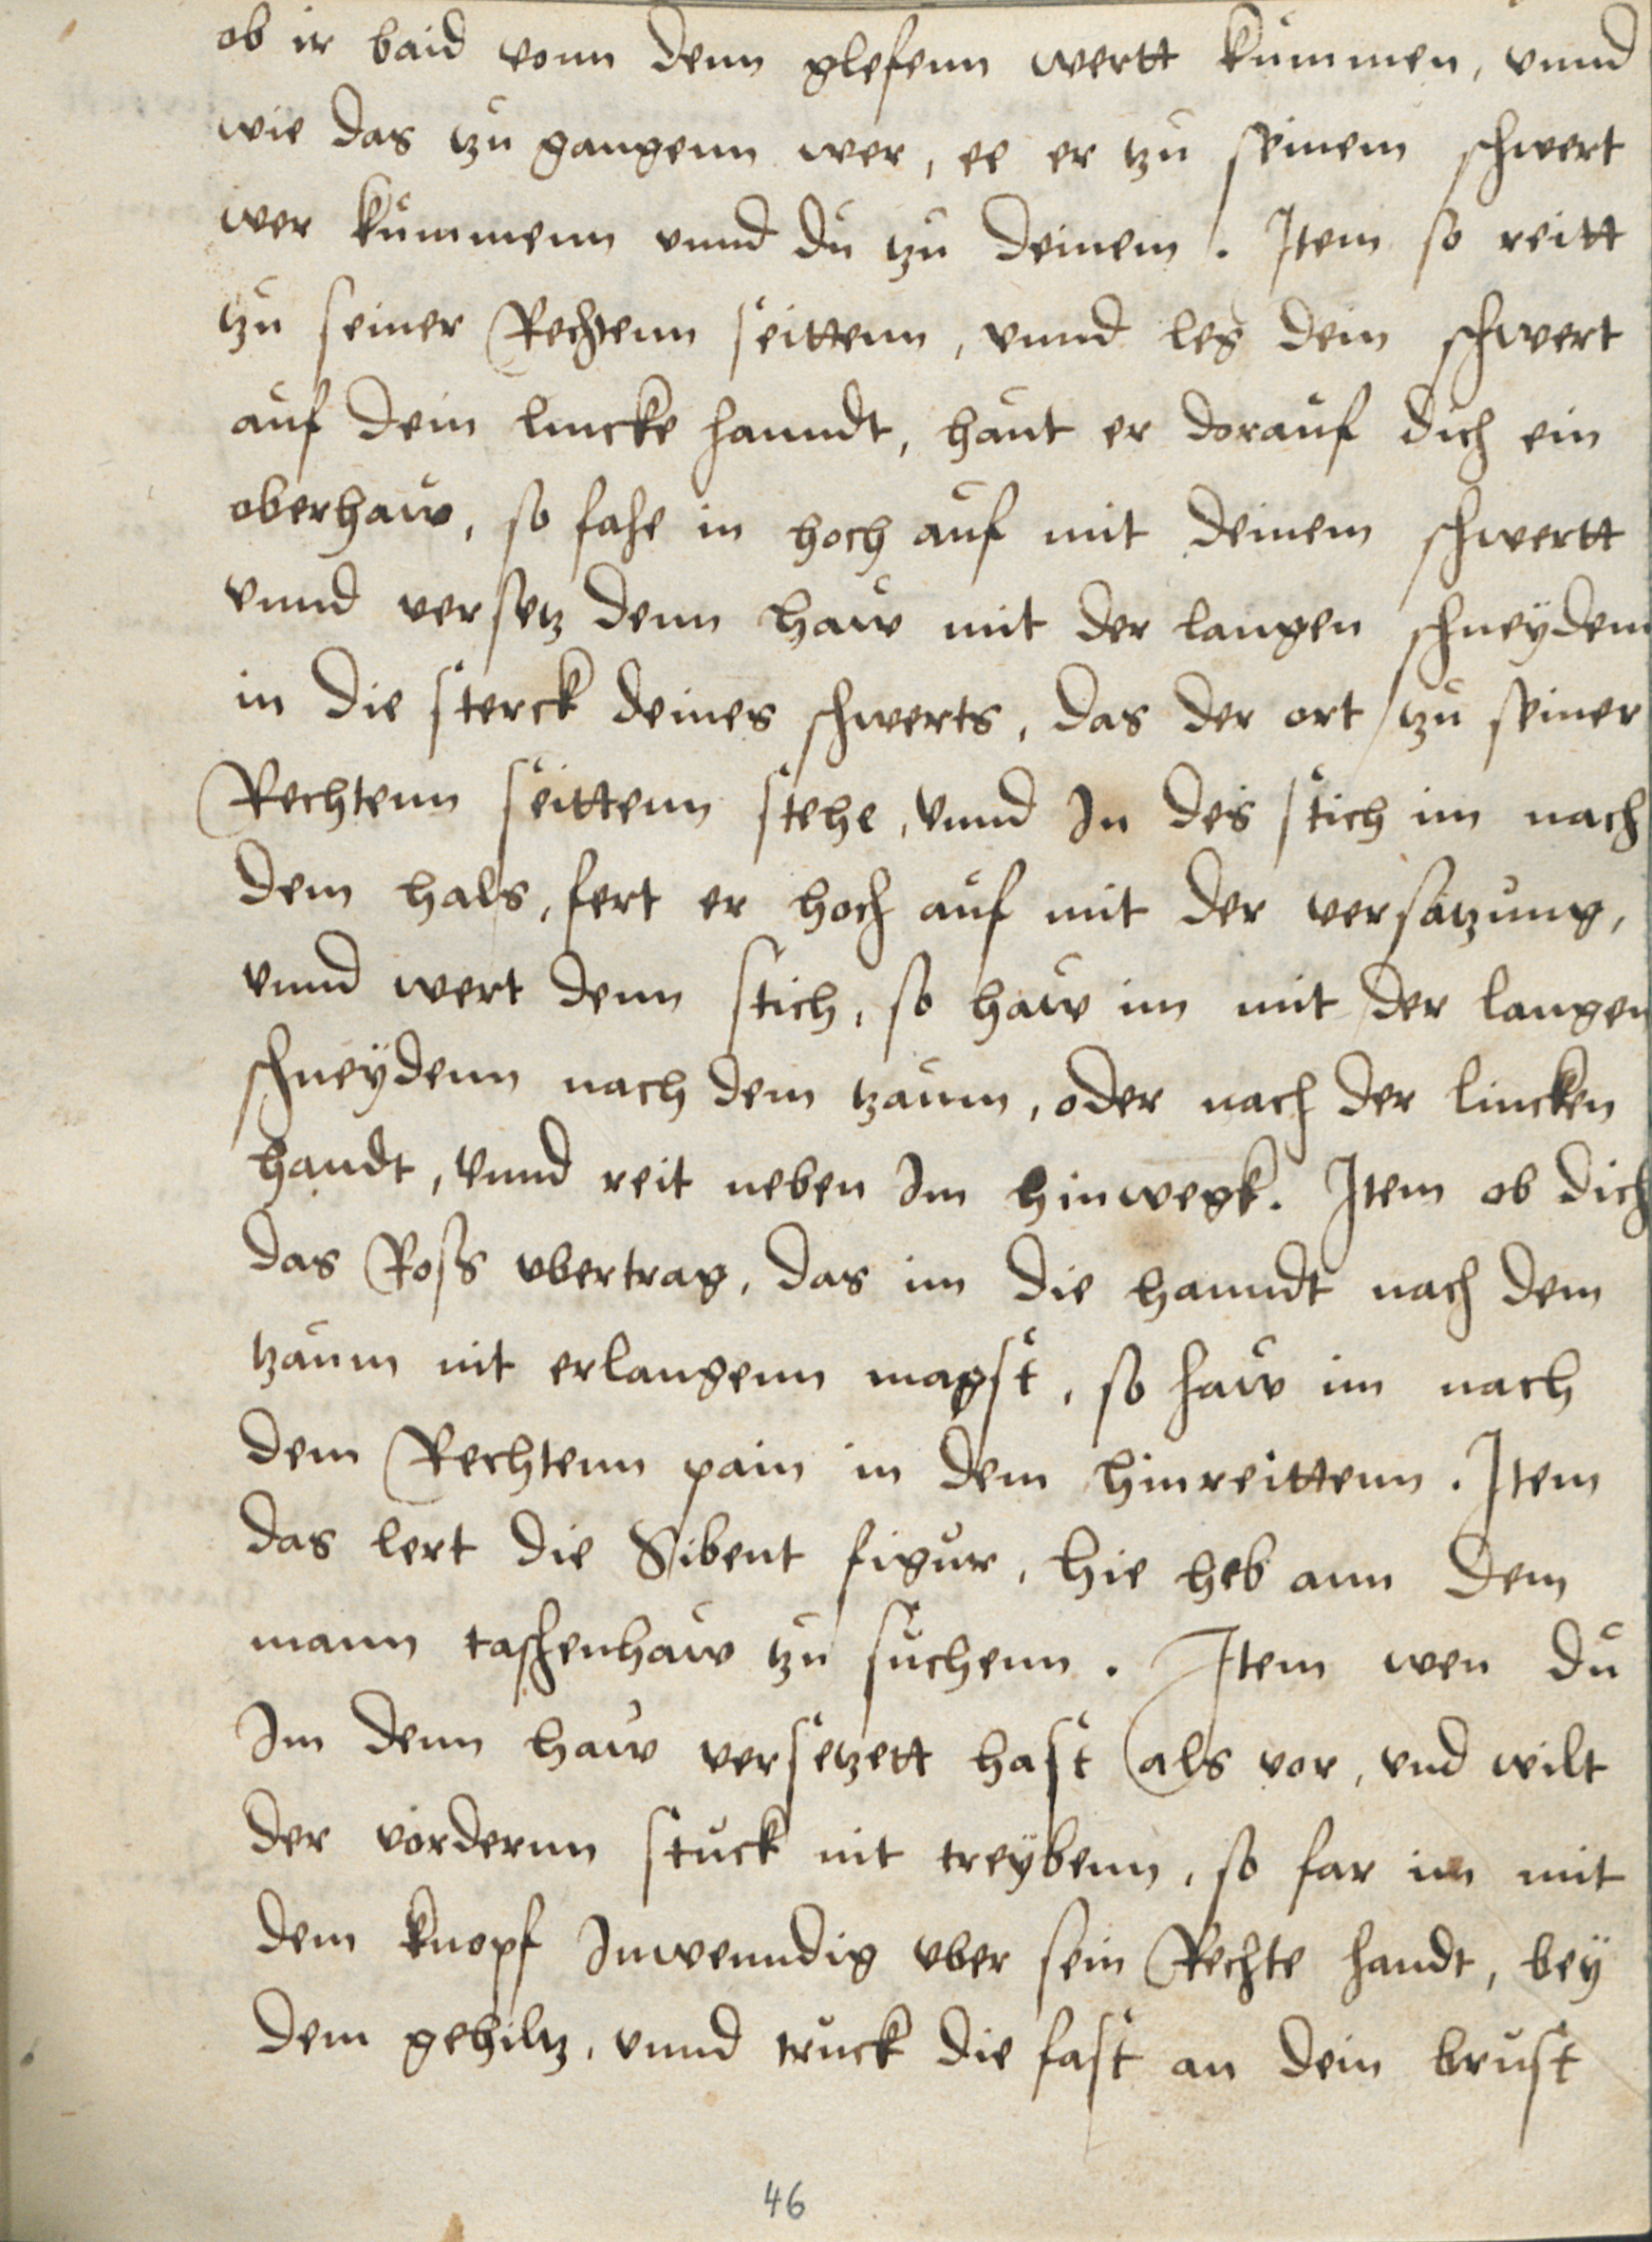 ob ir baid vonn denn glefenn wertt kummen, vnnd
wie das tzu gangenn wer, ee er tzu seinem schwert
wer kummenn vnnd du tzu deinem. Item so reitt
tzu seiner Rechtenn seittenn, vnnd leg dein schwert
auf dein lincke hanndt, haut er dorauf dich ein
oberhaw, so fahe in hoch auf mit deinem schwertt
vnnd versetz denn haw mit der langen schneydenn
in die sterck deines schwerts, das der ort tzu seiner
Rechtenn seittenn stehe, vnnd In des stich im nach
dem hals, fert er hoch auf mit der versatzung,
vnnd wert denn stich, so haw im mit der langen
schneydenn nach dem tzaum, oder nach der lincken
handt, vnnd reit neben Im hinwegk. Item ob dich
das Roß vbertrag, das im die hanndt nach dem
tzaum nit erlangenn magst, so haw im nach
dem Rechtenn pain in dem hinreittenn. Item
das lert die Sibent figur, hie heb ann dem
mann taschenhaw tzu suchenn. Item wen du
Im denn haw versetzett hast als vor, vnd wilt
der vordernn stuck nit treybenn, so far im mit
dem knopf Inwenndig vber sein Rechte handt, bey
dem gehiltz, vnnd truck die fast an dein brust
46